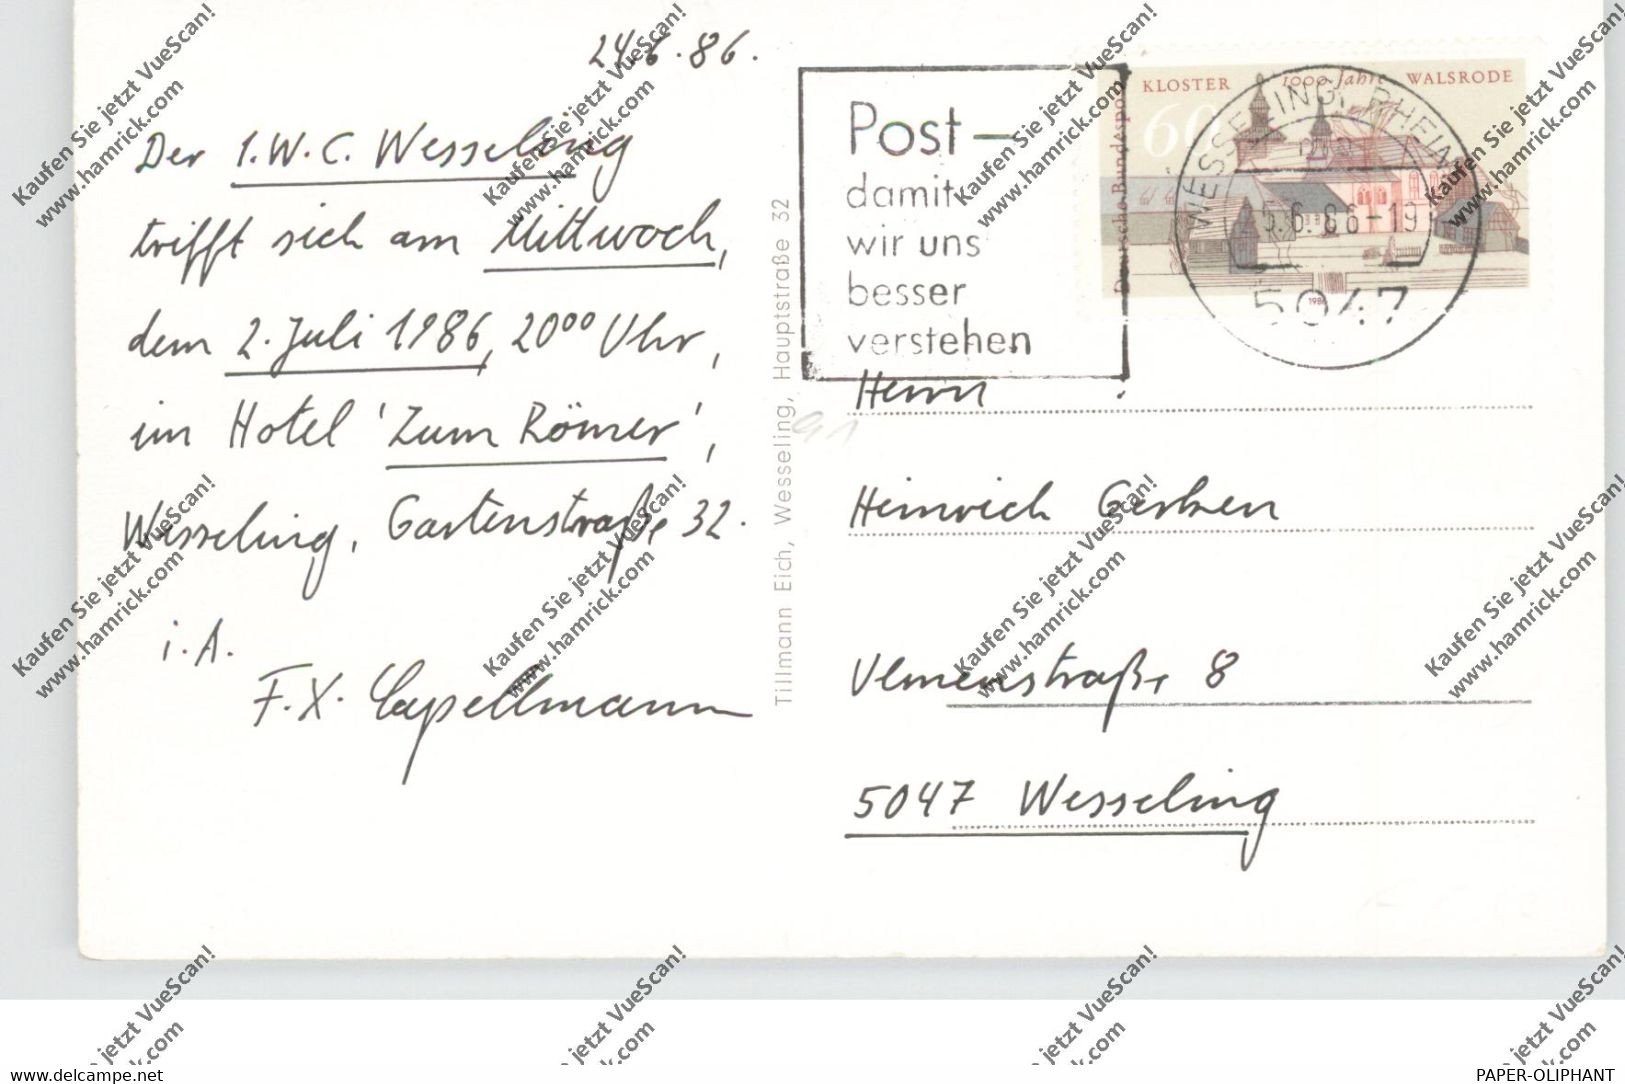 24.6.86.
Der 1.W.C. Wesseling
trifft sich am Mittwoch,
dem 2. Juli 1986, 20⁰⁰ Uhr,
im Hotel 'Zum Römer',
Wesseling, Gartenstraße 32.
i.A.
F.X. Capellmann
Tillmann Eich, Wesseling, Hauptstraße 32
Post –
damit
wir uns
besser
verstehen
KLOSTER 1000 Jahre WALSRODE
Deutsche Bundespost
60
1986
WESSELING, RHEINL
5.6.86-19
5047
Herrn
Heinrich Gerken
Ulmenstraße 8
5047 Wesseling
Kaufen Sie jetzt VueScan!
www.hamrick.com
www.delcampe.net
PAPER-OLIPHANT